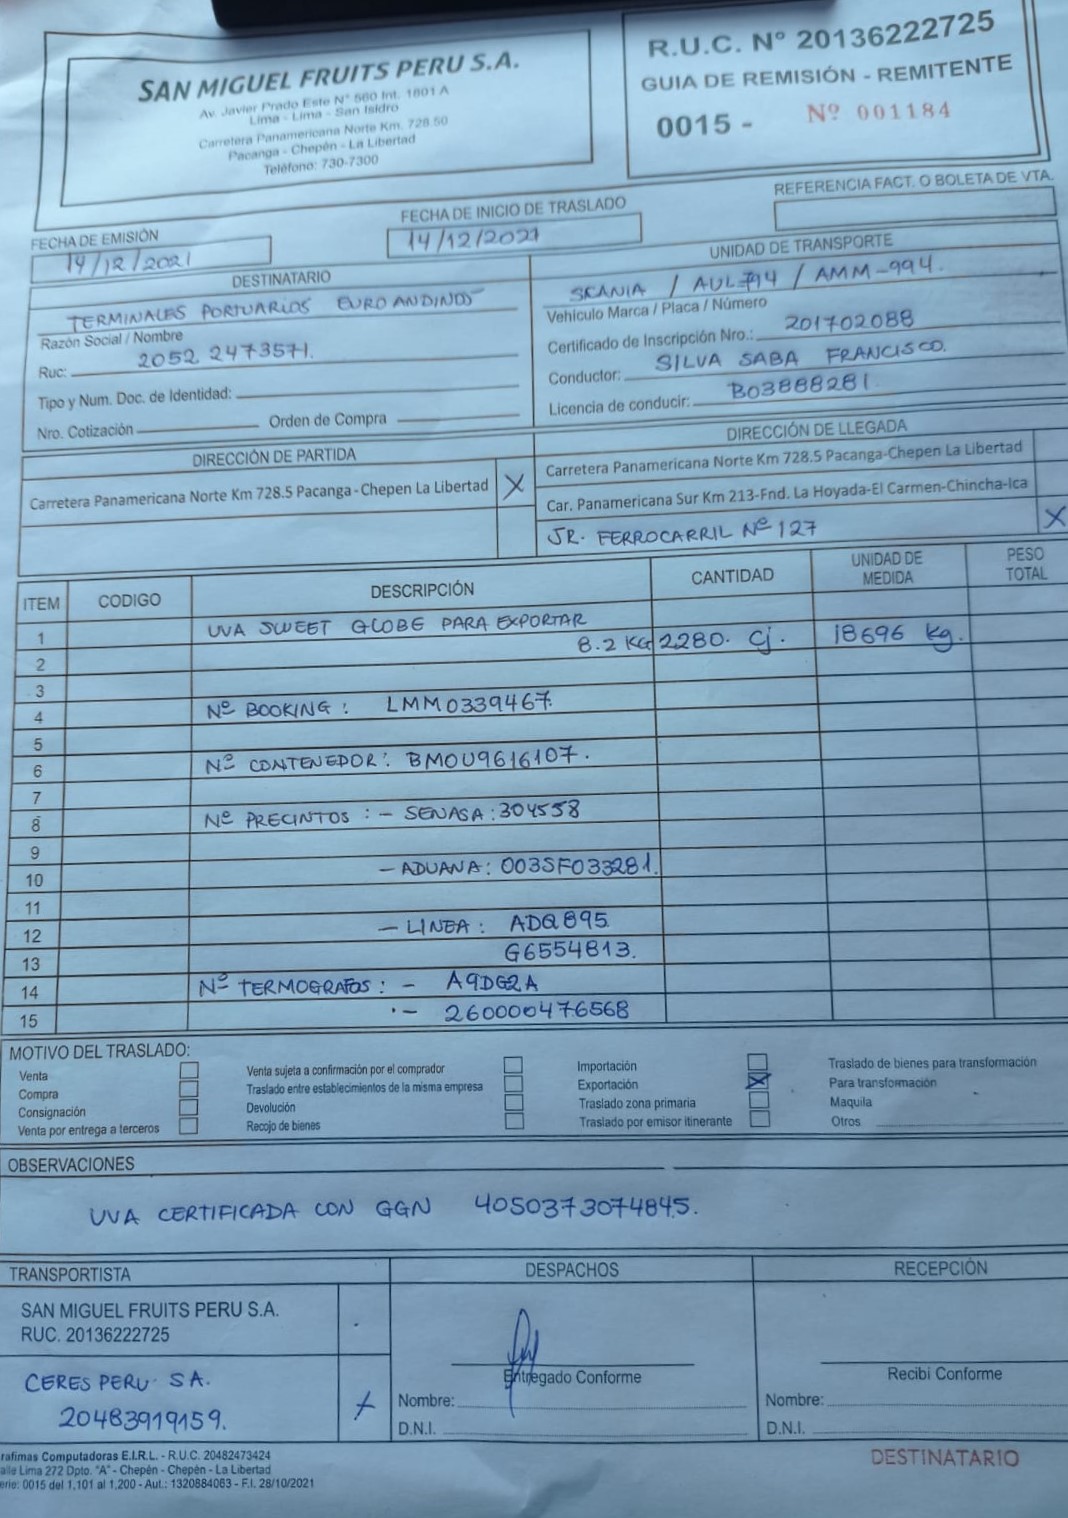 SAN MIGUEL FRUITS PERU S.A.
Av. Javier Prado Este N° 560 Int. 1801 A
Lima - Lima - San Isidro
Carretera Panamericana Norte Km. 728.50
Pacanga - Chepén - La Libertad
Teléfono: 730-7300
R.U.C. N° 20136222725
GUIA DE REMISIÓN - REMITENTE
0015 - Nº 001184
REFERENCIA FACT. O BOLETA DE VTA.
FECHA DE EMISIÓN
14/12/2021
FECHA DE INICIO DE TRASLADO
14/12/2021
DESTINATARIO
TERMINALES PORTUARIOS EUROANDINOS
Razón Social / Nombre
Ruc: 2052 2473571.
Tipo y Num. Doc. de Identidad:
Nro. Cotización Orden de Compra
UNIDAD DE TRANSPORTE
SKANIA / AUL-794 / AMM-994.
Vehículo Marca / Placa / Número
Certificado de Inscripción Nro.: 201702088
Conductor: SILVA SABA FRANCISCO.
Licencia de conducir: B03888281.
DIRECCIÓN DE PARTIDA
Carretera Panamericana Norte Km 728.5 Pacanga-Chepen La Libertad X
DIRECCIÓN DE LLEGADA
Carretera Panamericana Norte Km 728.5 Pacanga-Chepen La Libertad
Car. Panamericana Sur Km 213-Fnd. La Hoyada-El Carmen-Chincha-Ica
JR. FERROCARRIL Nº 127 X
ITEM CODIGO DESCRIPCIÓN CANTIDAD UNIDAD DE MEDIDA PESO TOTAL
1 UVA SWEET GLOBE PARA EXPORTAR
2 8.2 KG 2280. Cj. 18696 kg.
3
4 Nº BOOKING : LMM0339467.
5
6 Nº CONTENEDOR : BMOU9616107.
7
8 Nº PRECINTOS : - SENASA : 304558
9
10 - ADUANA : 003SF033281.
11
12 - LINEA : ADQ895
13 G6554813.
14 Nº TERMOGRAFOS : - A9DG2A
15 - 260000476568
MOTIVO DEL TRASLADO:
Venta
Compra
Consignación
Venta por entrega a terceros
Venta sujeta a confirmación por el comprador
Traslado entre establecimientos de la misma empresa
Devolución
Recojo de bienes
Importación
Exportación X
Traslado zona primaria
Traslado por emisor itinerante
Traslado de bienes para transformación
Para transformación
Maquila
Otros
OBSERVACIONES
UVA CERTIFICADA CON GGN 4050373074845.
TRANSPORTISTA
SAN MIGUEL FRUITS PERU S.A.
RUC. 20136222725
CERES PERU S.A.
20483919159. X
DESPACHOS
Entregado Conforme
Nombre:
D.N.I.
RECEPCIÓN
Recibi Conforme
Nombre:
D.N.I.
rafimas Computadoras E.I.R.L. - R.U.C. 20482473424
alle Lima 272 Dpto. "A" - Chepén - Chepén - La Libertad
erie: 0015 del 1,101 al 1,200 - Aut.: 1320884063 - F.I. 28/10/2021
DESTINATARIO